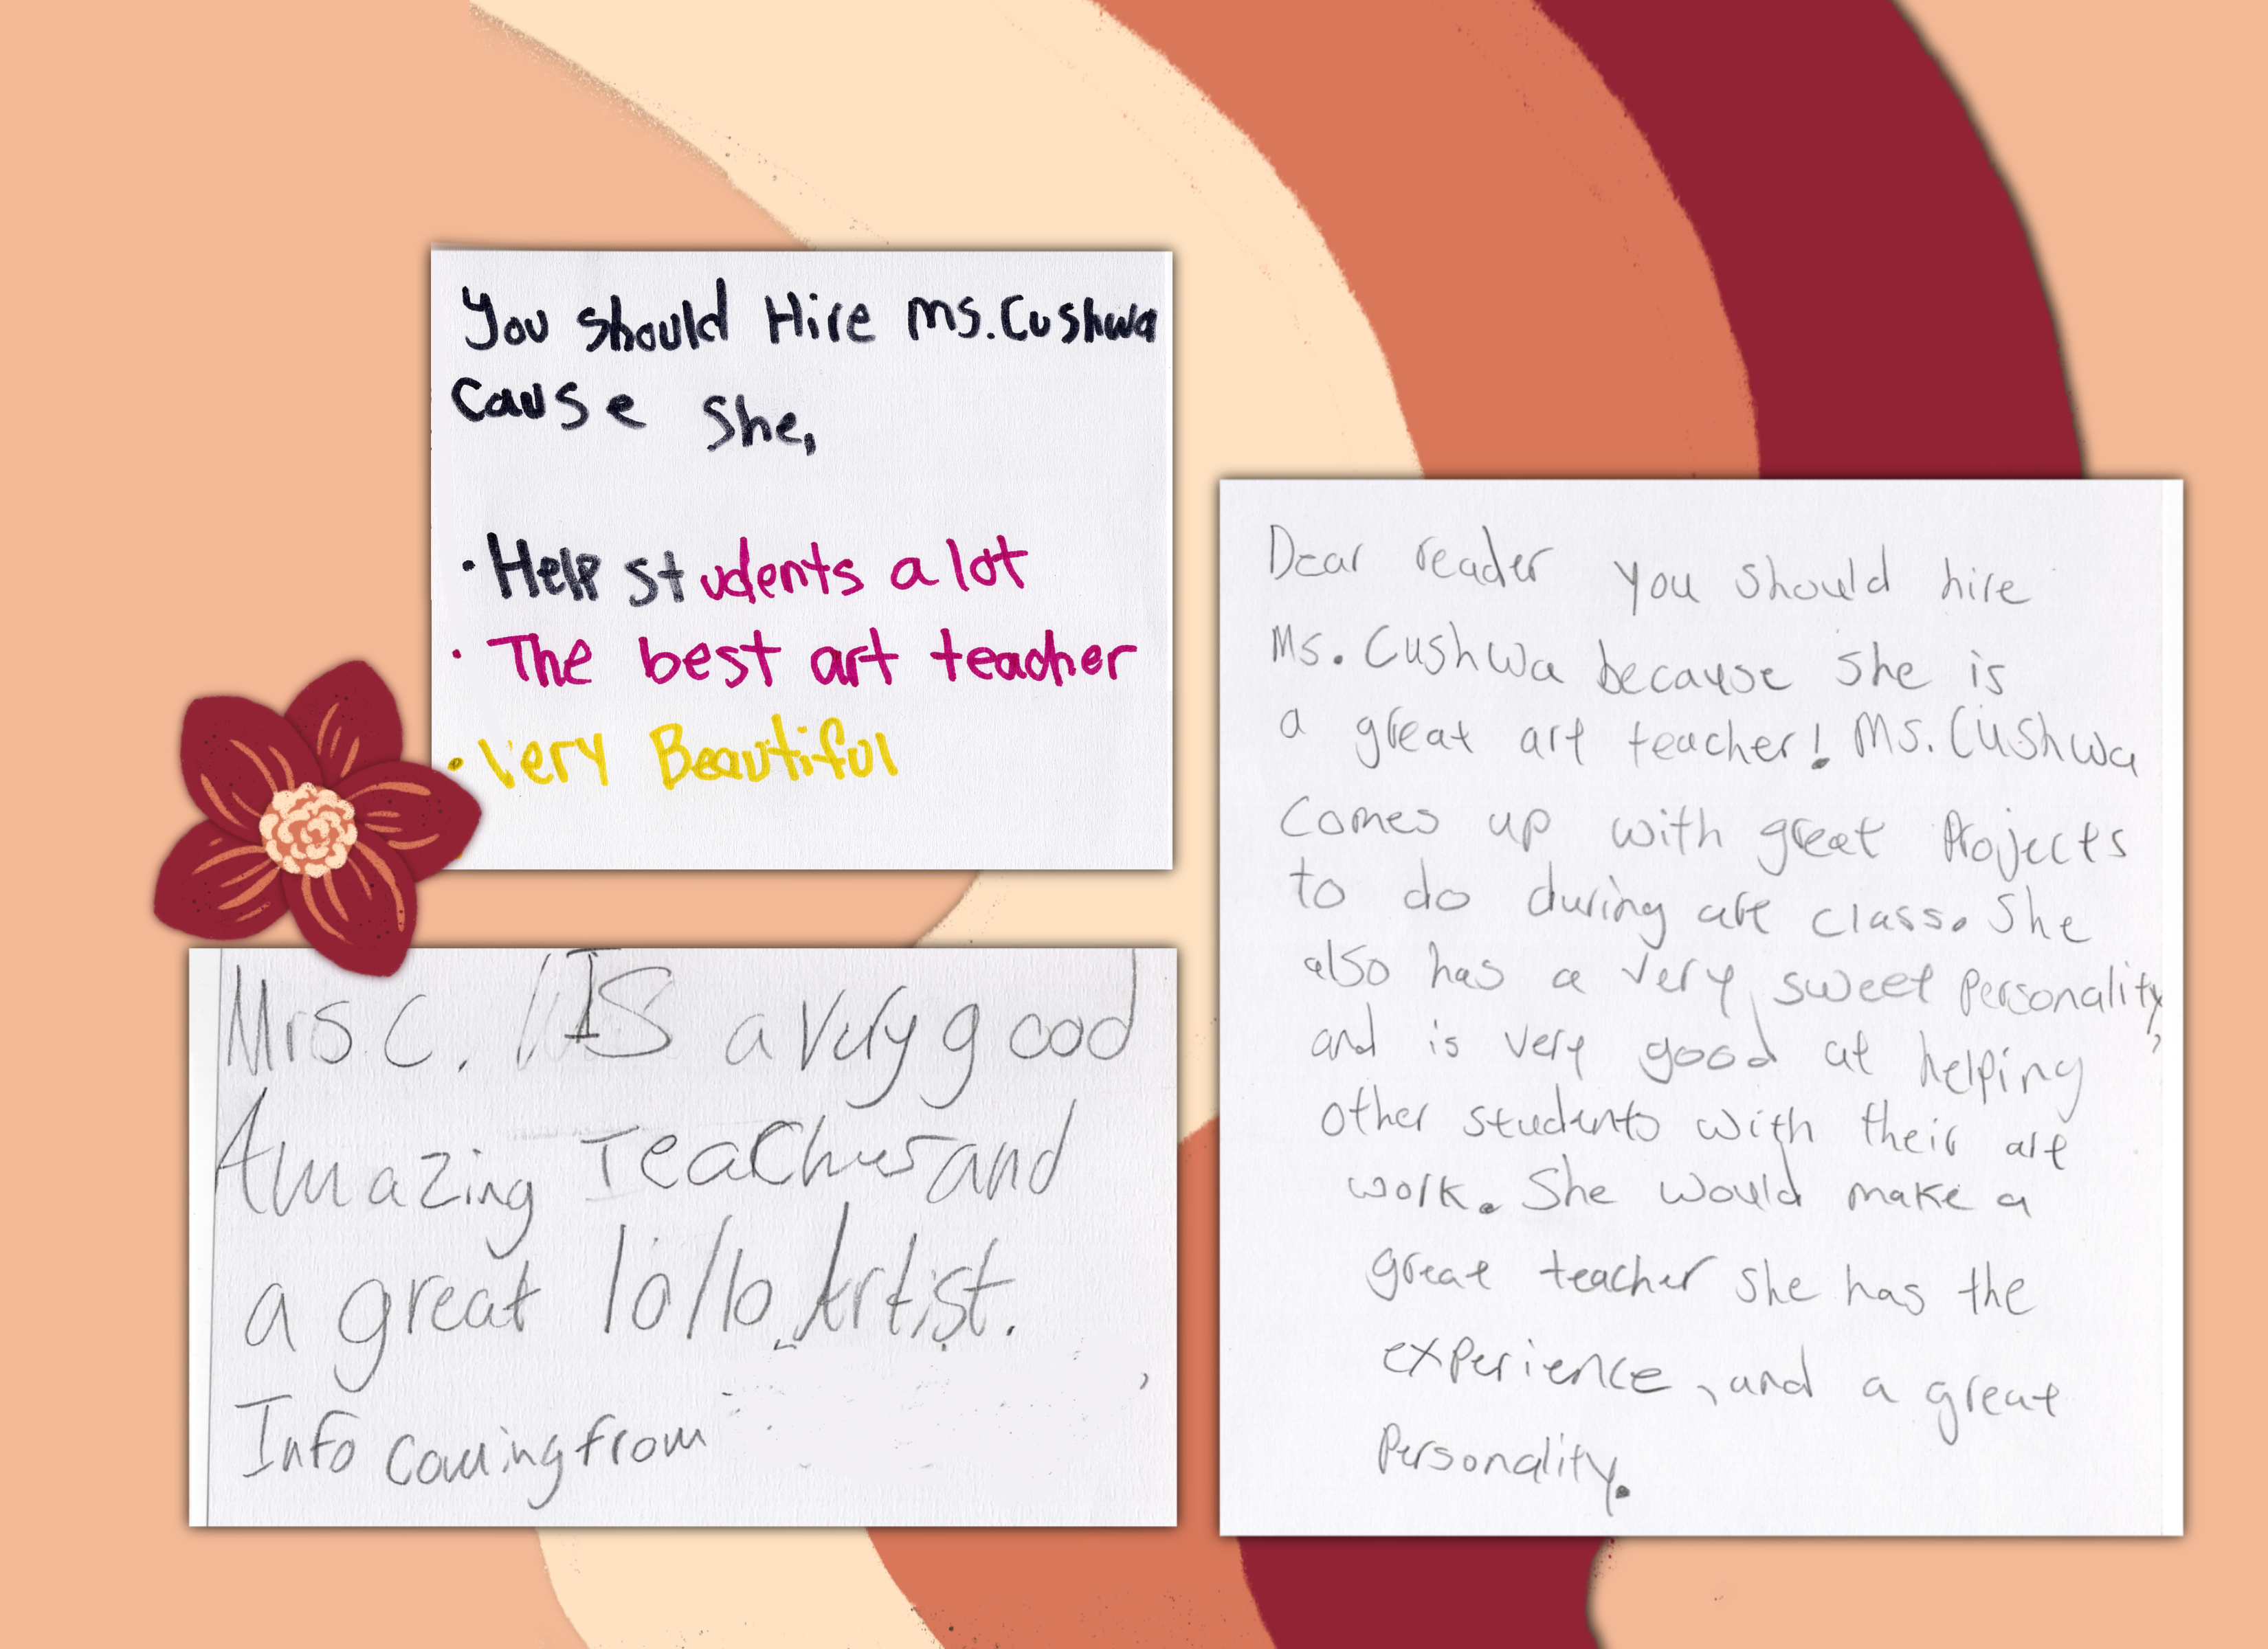 You should Hire Ms. Cushwa
Cause She,
· Help students a lot
· The best art teacher
· Very Beautiful
Mrs C. IS a very good
Amazing Teacher and
a great 10/10 Artist.
Info coming from
Dear reader you should hire
Ms. Cushwa because she is
a great art teacher! Ms. Cushwa
comes up with great Projects
to do during art class. She
also has a very sweet personality,
and is very good at helping
other students with their art
work. She would make a
great teacher she has the
experience, and a great
Personality.